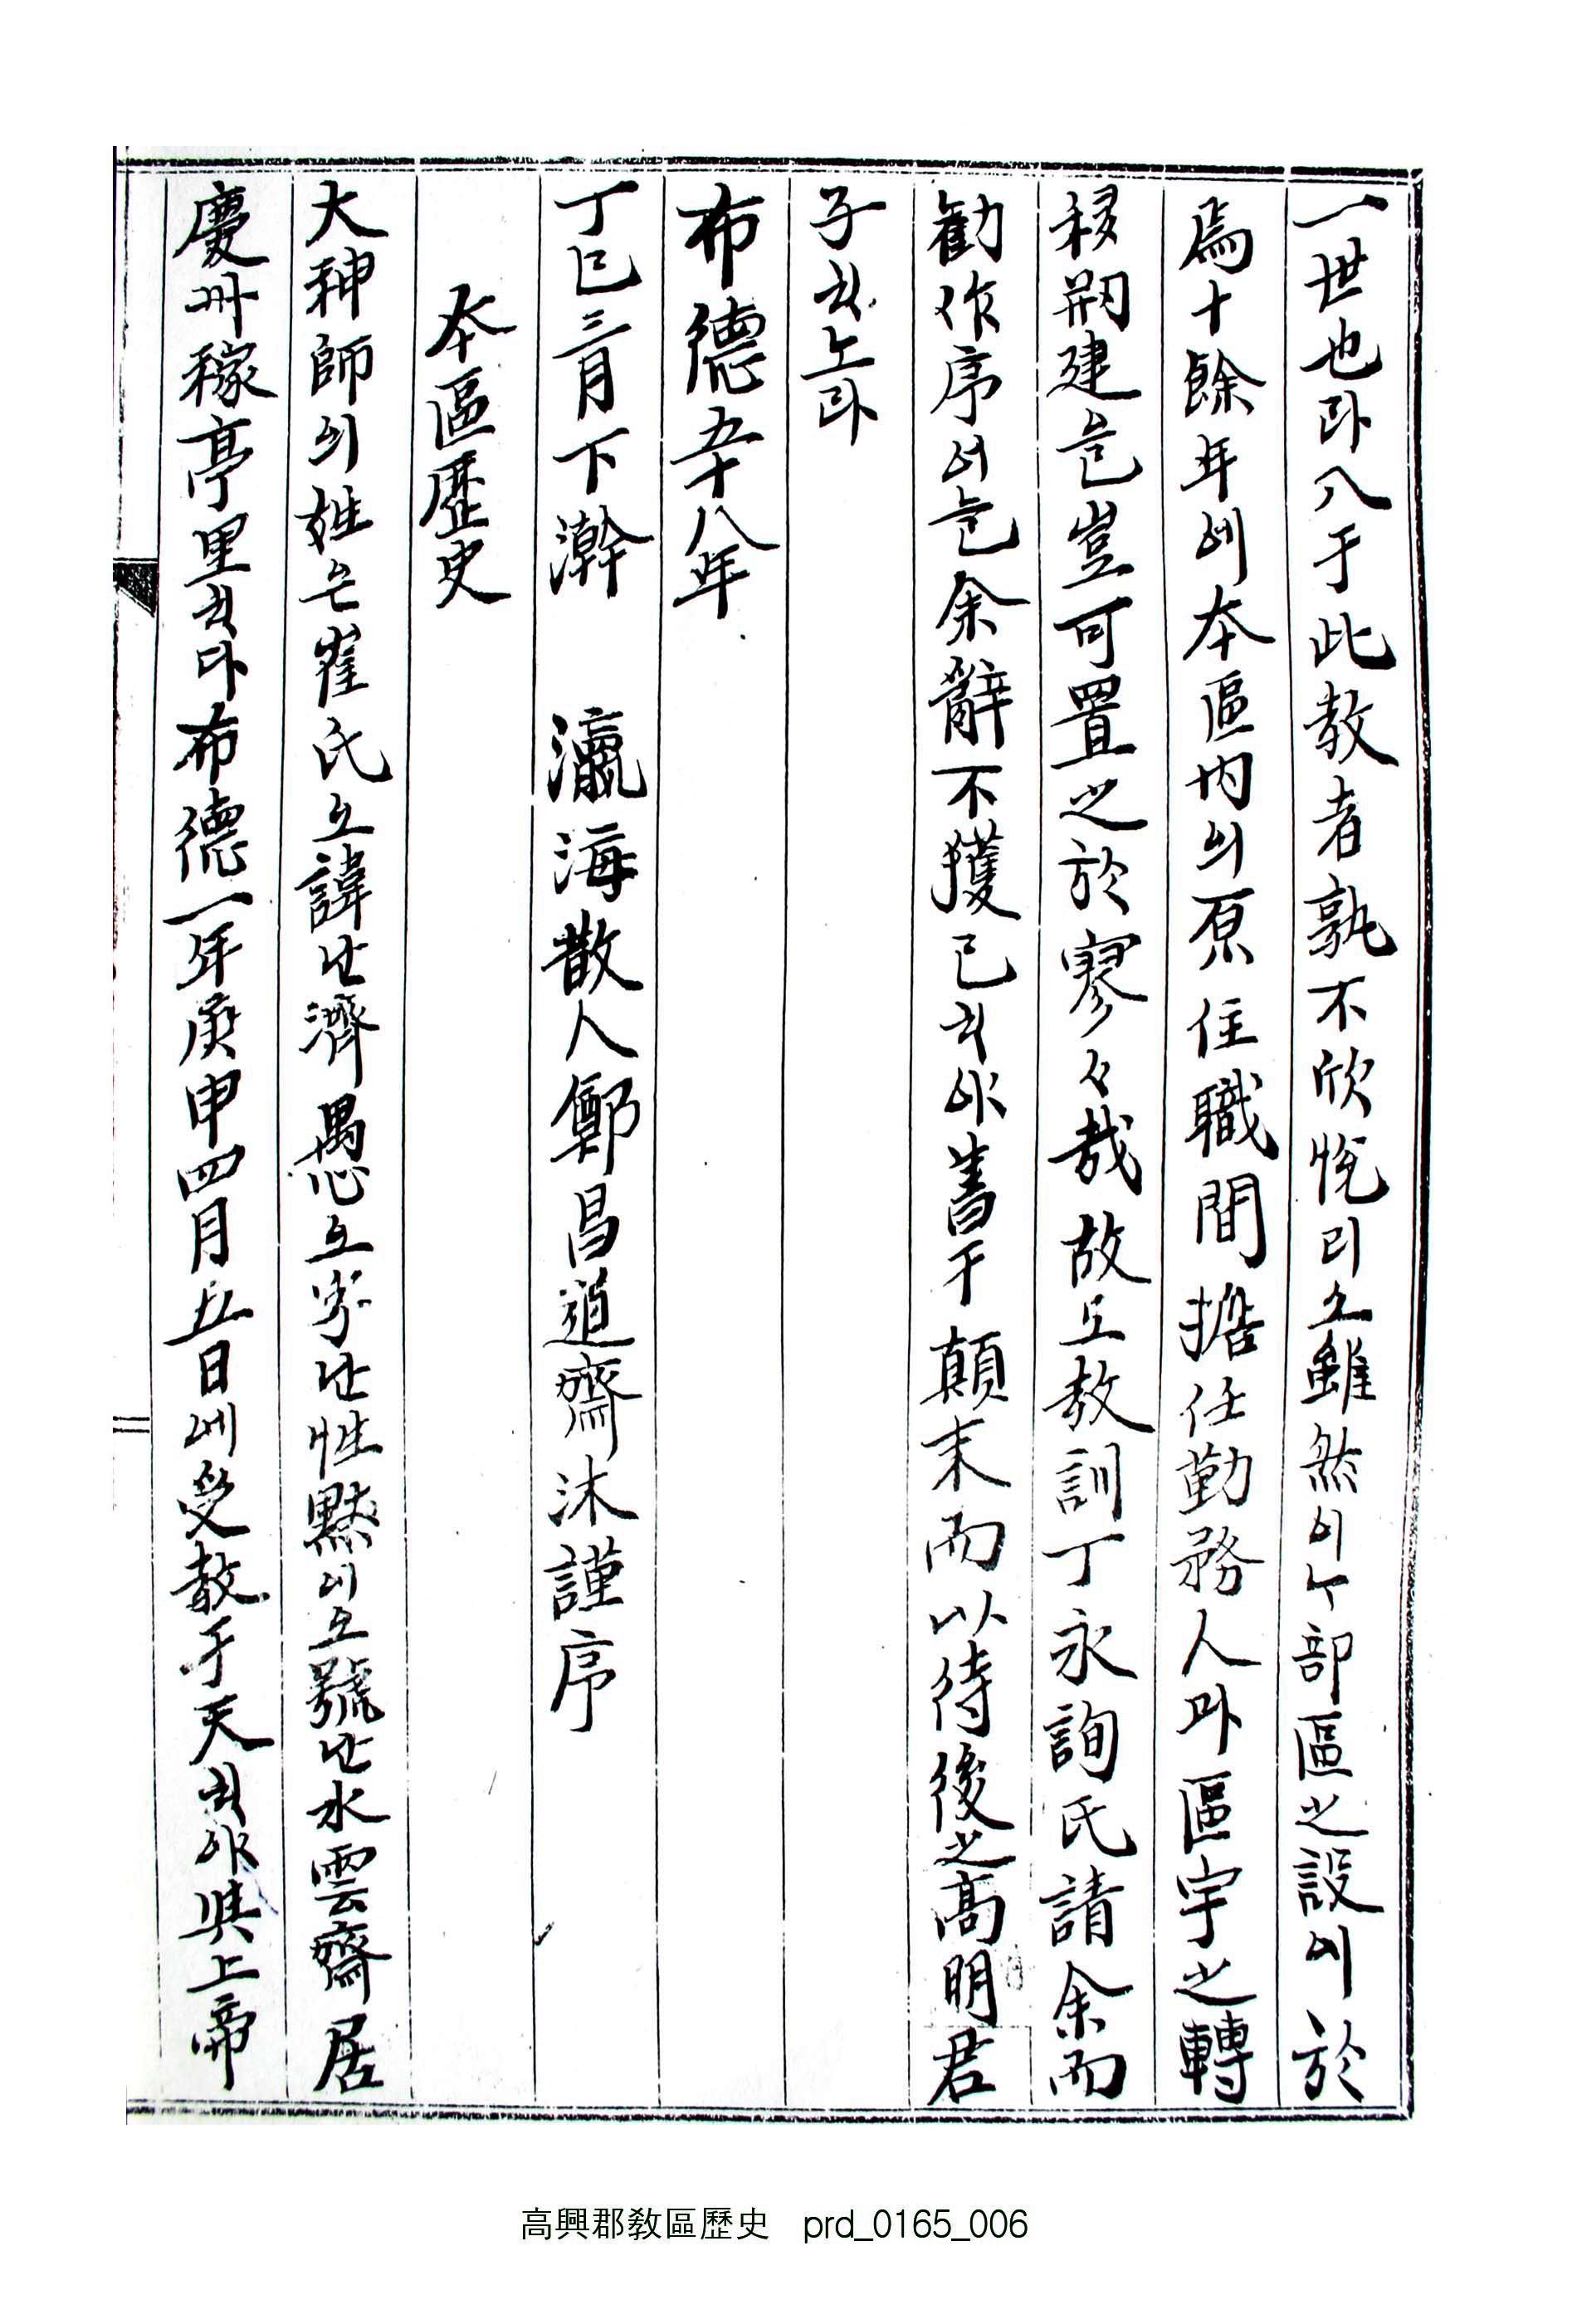 一世也라 入于此敎者孰不欣悅리오 雖然이나 部區之設이 於
焉十餘年에 本區內의 原住職間擔任勤務人과 區宇之轉
移刱建을 豈可置之於寥々哉 故오 敎訓丁永詢氏請余而
勸作序이을 余辭不獲已하야 書于顚末而以待後之高明君
子하노라
布德五十八年
丁巳三月下澣 瀛海散人鄭昌道齋沐謹序
本區歷史
大神師의 姓은 崔氏오 諱난 濟愚오 字난 性默이오 號난 水雲齋 居
慶州稼亭里하다 布德一年庚申四月五日에 受敎于天하야 與上帝
高興郡敎區歷史 prd_0165_006